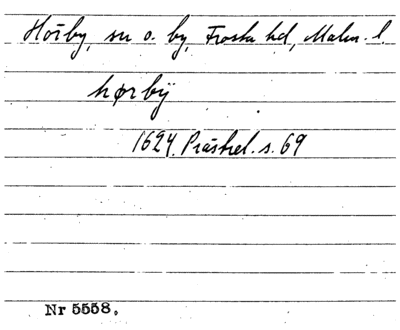 Hörby, sn o. by, Frosta hd, Malm. l.
hørbÿ
1624. Prästrel. s. 69
Nr 5558.